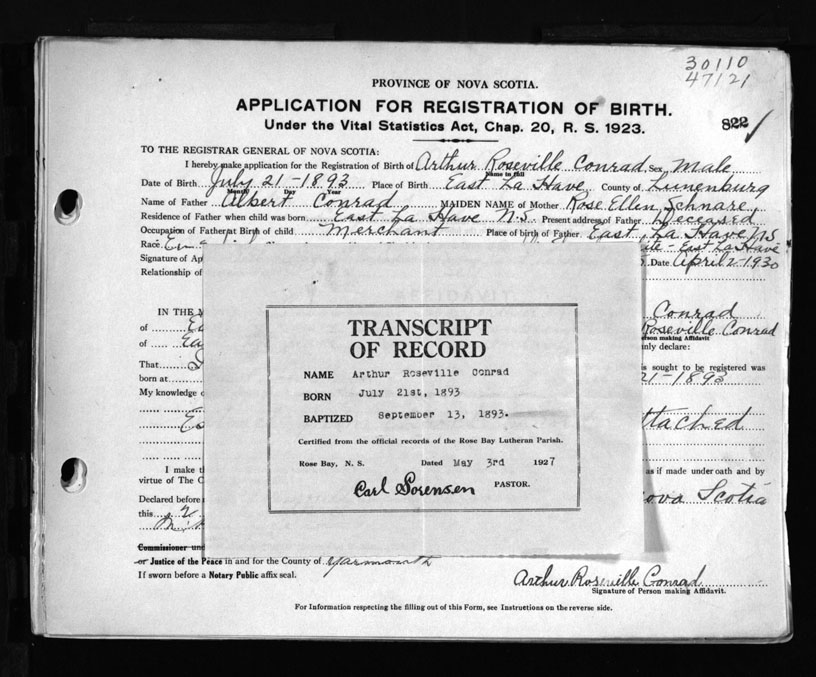 30110
47121
PROVINCE OF NOVA SCOTIA.
APPLICATION FOR REGISTRATION OF BIRTH.
822
Under the Vital Statistics Act, Chap. 20, R. S. 1923.
TO THE REGISTRAR GENERAL OF NOVA SCOTIA:
I hereby make application for the Registration of Birth of Arthur Roseville Conrad Sex Male
Name in full
Date of Birth July 21-1893 Place of Birth East La Have County of Lunenburg
Month Day Year
Name of Father Albert Conrad MAIDEN NAME of Mother Rose Ellen Schnare
Residence of Father when child was born East La Have N.S. Present address of Father Deceased
Occupation of Father at Birth of child Merchant Place of birth of Father East La Have N.S
Race
East La Have
Signature of Ap
Date April 2-1930
Relationship of
IN THE
Conrad
of
Roseville Conrad
person making Affidavit
of
nly declare:
That
is sought to be registered was
born at
21-1893
My knowledge o
ttached
I make t
as if made under oath and by
virtue of The C
Declared before
Nova Scotia
this
TRANSCRIPT
OF RECORD
NAME Arthur Roseville Conrad
BORN July 21st, 1893
BAPTIZED September 13, 1893.
Certified from the official records of the Rose Bay Lutheran Parish.
Rose Bay, N. S. Dated May 3rd 1927
Carl Sorensen PASTOR.
Commissioner und
or Justice of the Peace in and for the County of Yarmouth
If sworn before a Notary Public affix seal.
Arthur Roseville Conrad
Signature of Person making Affidavit.
For Information respecting the filling out of this Form, see Instructions on the reverse side.